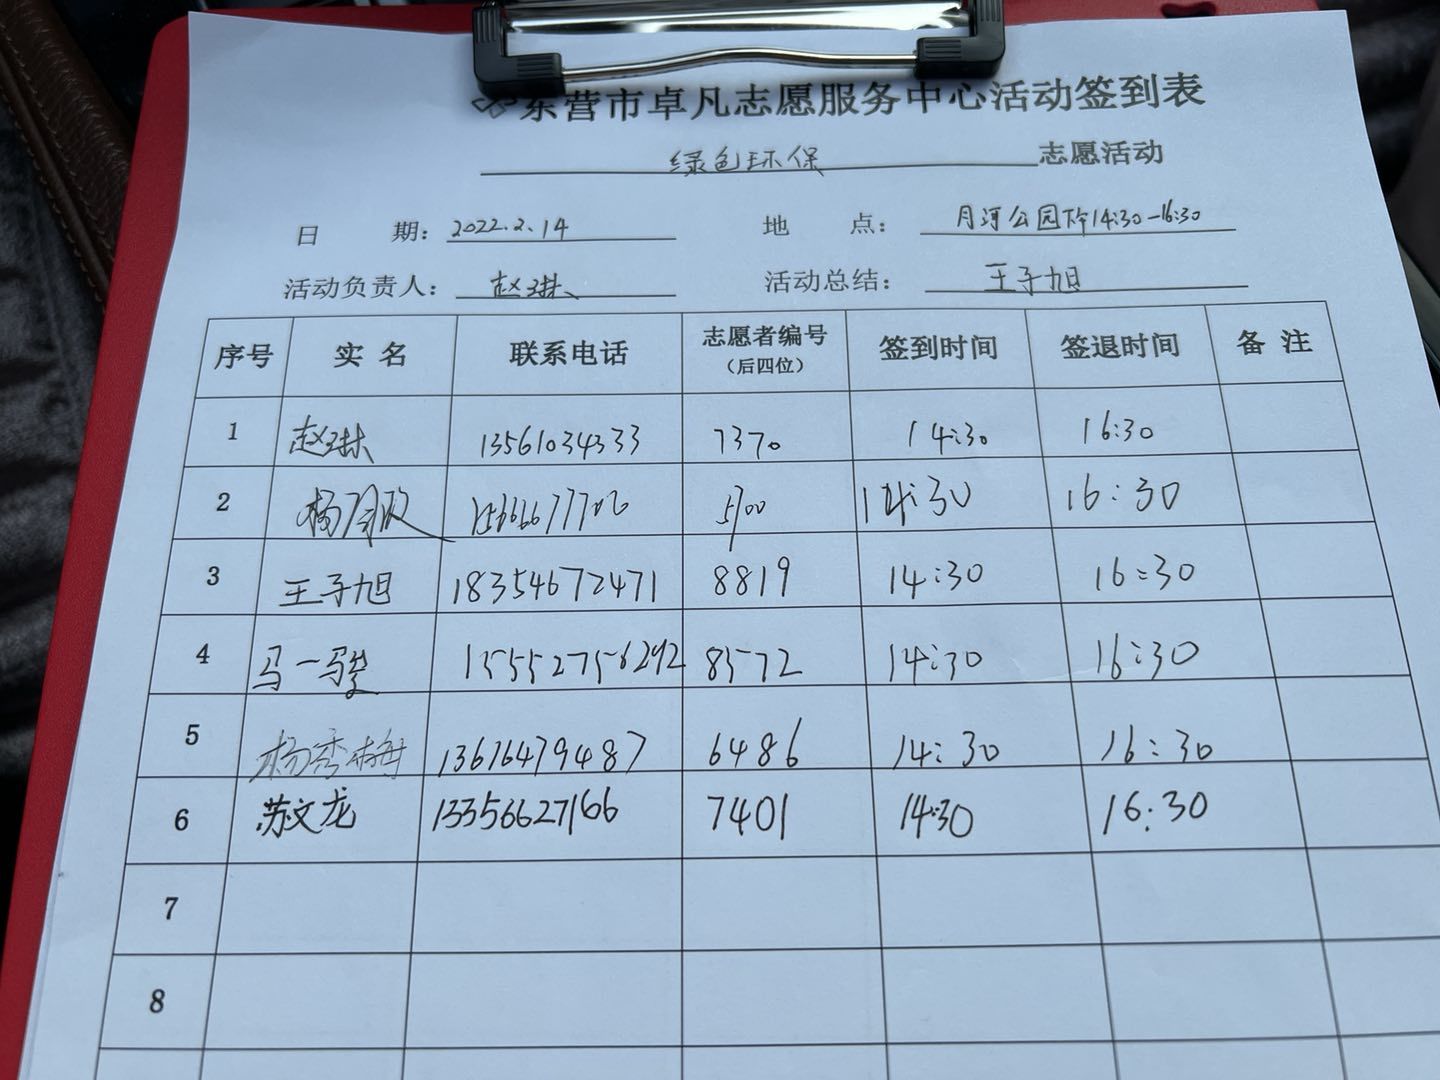 东营市卓凡志愿服务中心活动签到表
绿色环保 志愿活动
日 期: 2022.2.14 地 点: 月河公园下午14:30-16:30
活动负责人: 赵琳 活动总结: 王子旭
序号 实 名 联系电话 志愿者编号 签到时间 签退时间 备 注
(后四位)
1 赵琳 13561034333 7370 14:30 16:30
2 杨 5700 14:30 16:30
3 王子旭 18354672471 8819 14:30 16:30
4 马一骏 15552756292 8572 14:30 16:30
5 杨秀梅 13676479487 6486 14:30 16:30
6 苏文龙 13356627166 7401 14:30 16:30
7
8